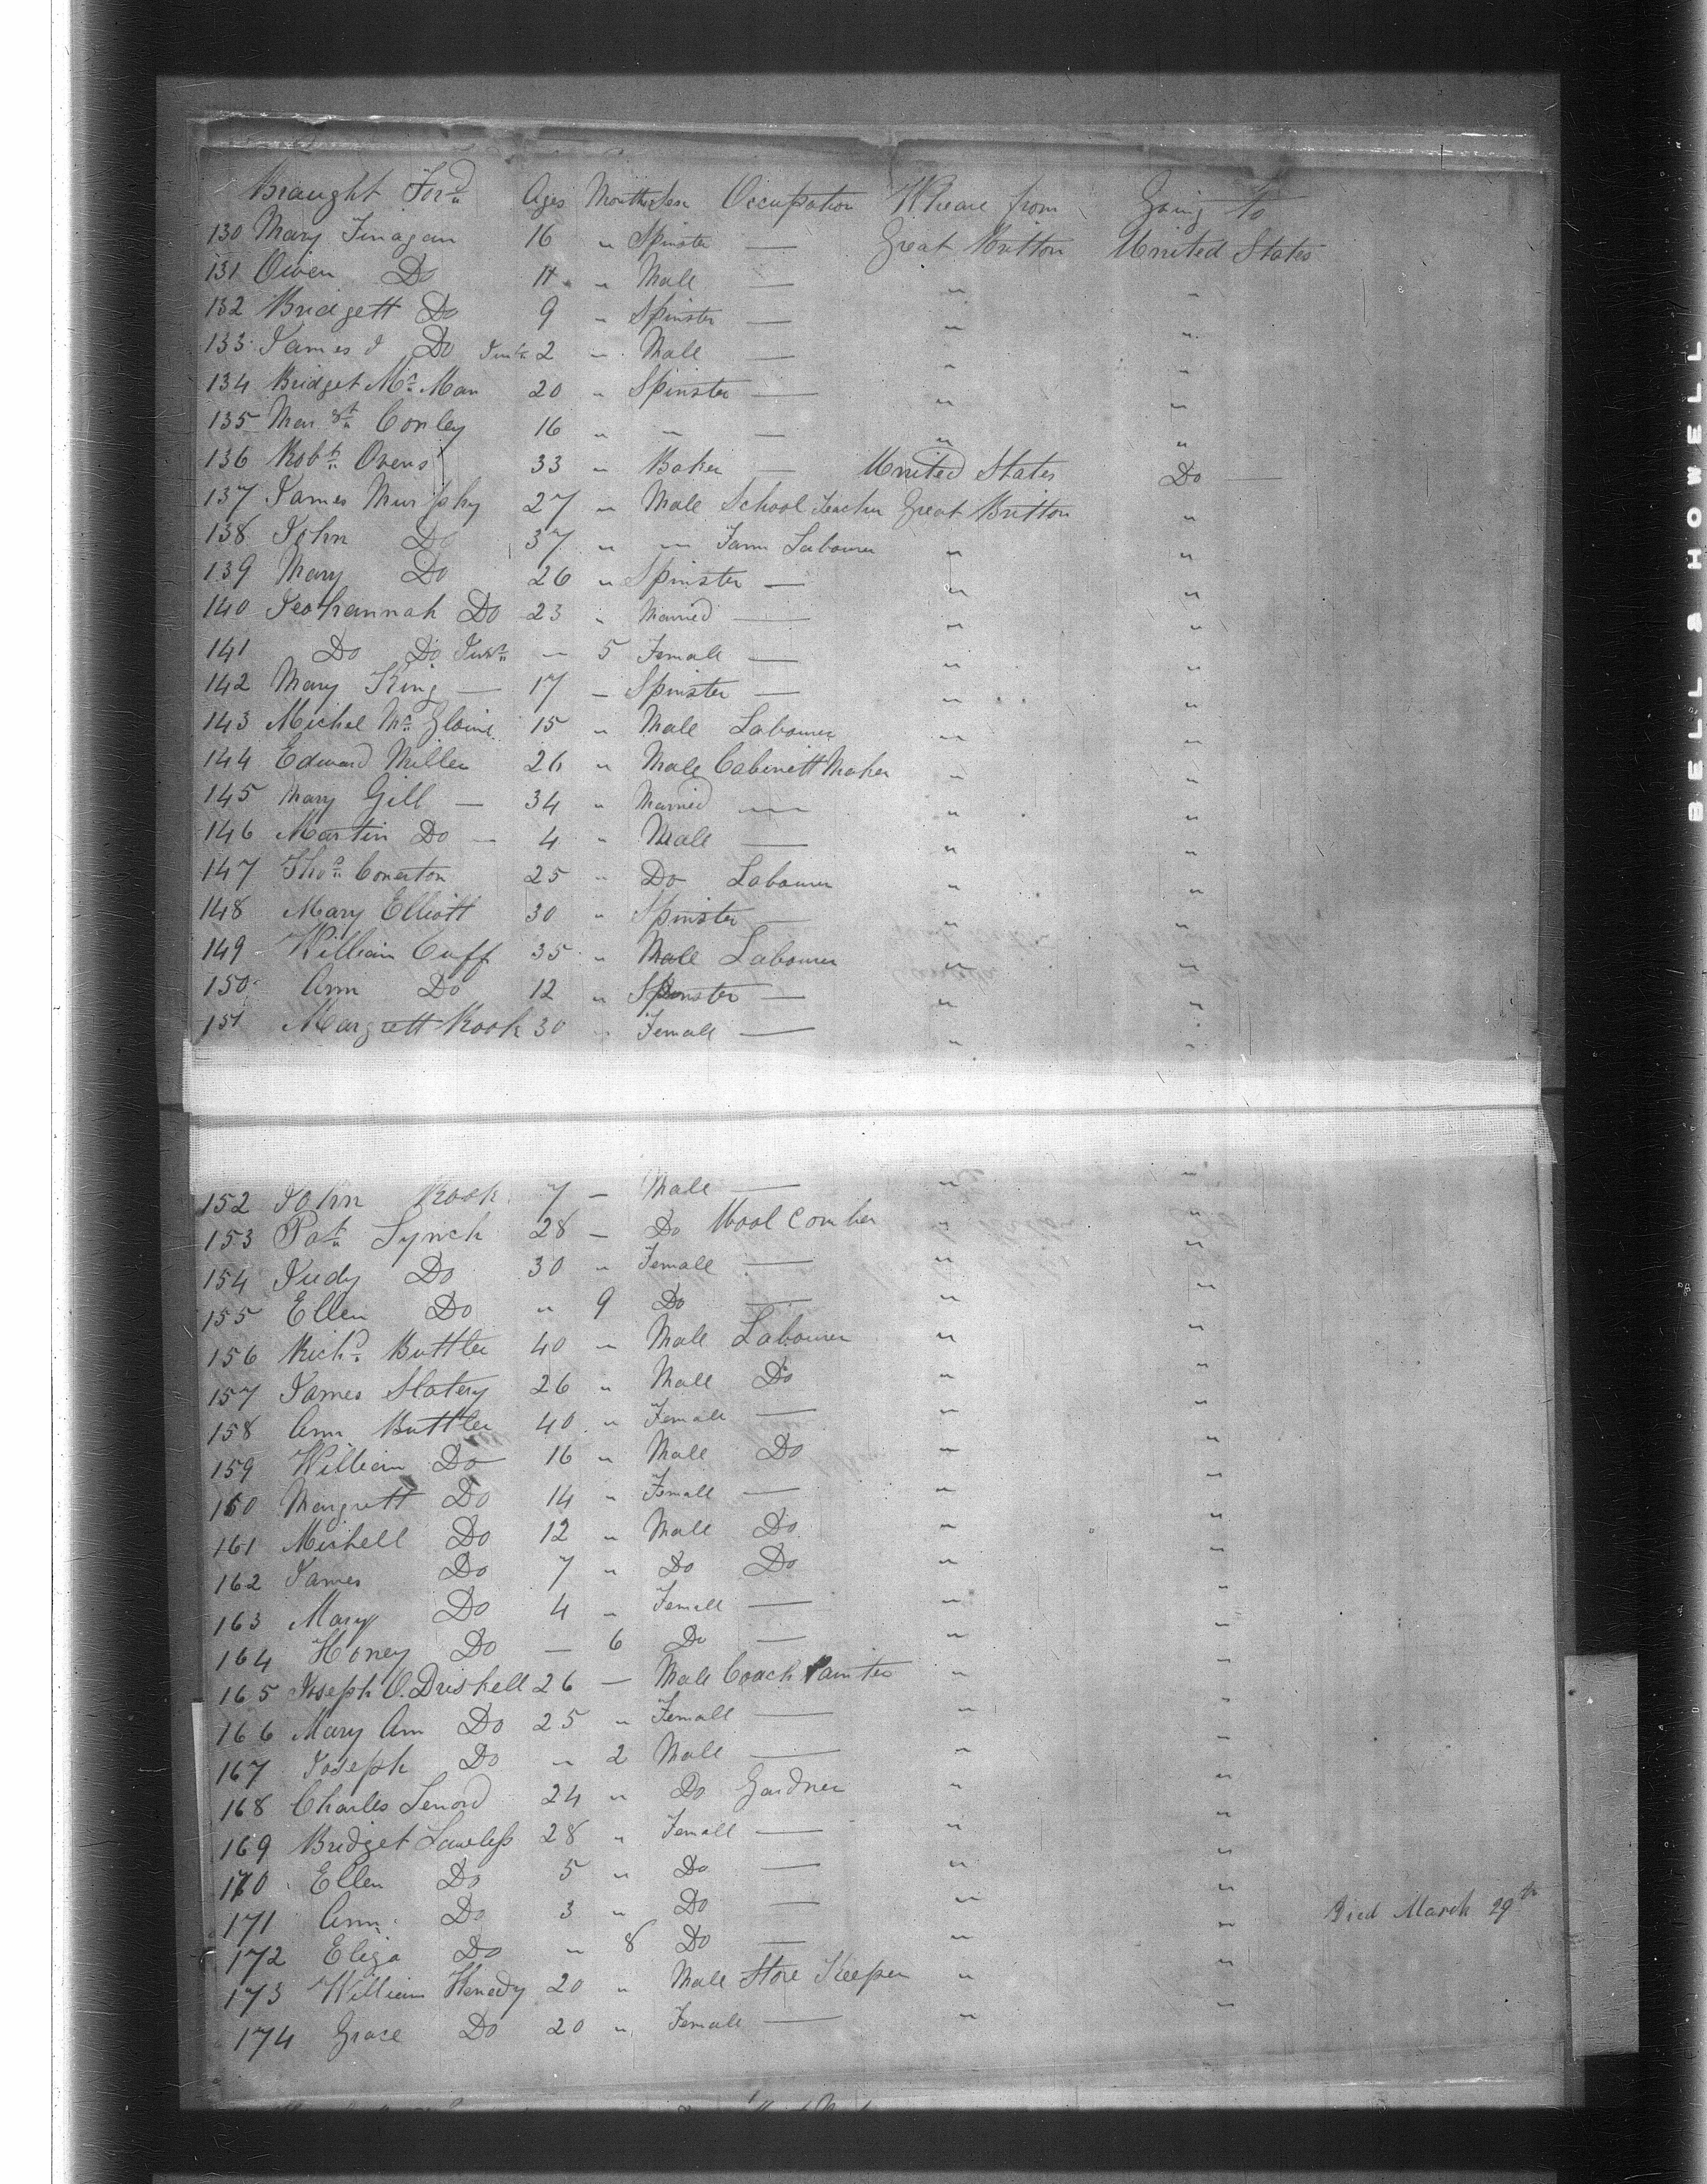 Braught Ford Ages Months Sex Occupation Wheare from Going to
130 Mary Finagan 16 " Spinster — Great Britton United States
131 Owen Do 11 " Male — " "
132 Bridgett Do 9 " Spinster — " "
133 James Do Junr 2 " Male — " "
134 Bridget Mc Man 20 " Spinster — " "
135 Conley 16 " " — " "
136 Robt Ovens 33 " Baker — United States Do —
137 James Murphy 27 " Male School Teacher Great Britton "
138 John Do 37 " " Farm Labourer " "
139 Mary Do 26 " Spinster — " "
140 Jeohannah Do 23 " Married — " "
141 Do Do Junr — 5 Female — " "
142 Mary King — 17 — Spinster — " "
143 Michel Mc Gloine 15 " Male Labourer " "
144 Edward Miller 26 " Male Cabinett Maker " "
145 Mary Gill — 34 " Married — " "
146 Martin Do — 4 " Male — " "
147 Thos Conerton 25 " Do Labourer " "
148 Mary Elliott 30 " Spinster — " "
149 William Cuff 35 " Male Labourer " "
150 Ann Do 12 " Spinster — " "
151 Margrett Rook 30 " Female — " "
152 John Rook 7 — Male — " "
153 Pat Lynch 28 — Do Wool Comber " "
154 Judy Do 30 " Female — " "
155 Ellen Do " 9 Do — " "
156 Richd Buttler 40 " Male Labourer " "
157 James Slatery 26 " Male Do " "
158 Ann Buttler 40 " Female — " "
159 William Do 16 " Male Do " "
160 Margrett Do 14 " Female — " "
161 Mishell Do 12 " Male Do " "
162 James Do 7 " Do Do " "
163 Mary Do 4 " Female — " "
164 Honey Do — 6 Do — " "
165 Joseph O. Driskell 26 — Male Coach Painter " "
166 Mary Ann Do 25 " Female — " "
167 Joseph Do " 2 Male — " "
168 Charles Lenord 24 " Do Gardner " "
169 Bridget Lawless 28 " Female — " "
170 Ellen Do 5 " Do — " "
171 Ann Do 3 " Do — " " Died March 29th
172 Eliza Do " 8 Do — " "
173 William Kenedy 20 " Male Store Keeper " "
174 Grace Do 20 " Female — " "
BELL & HOWELL